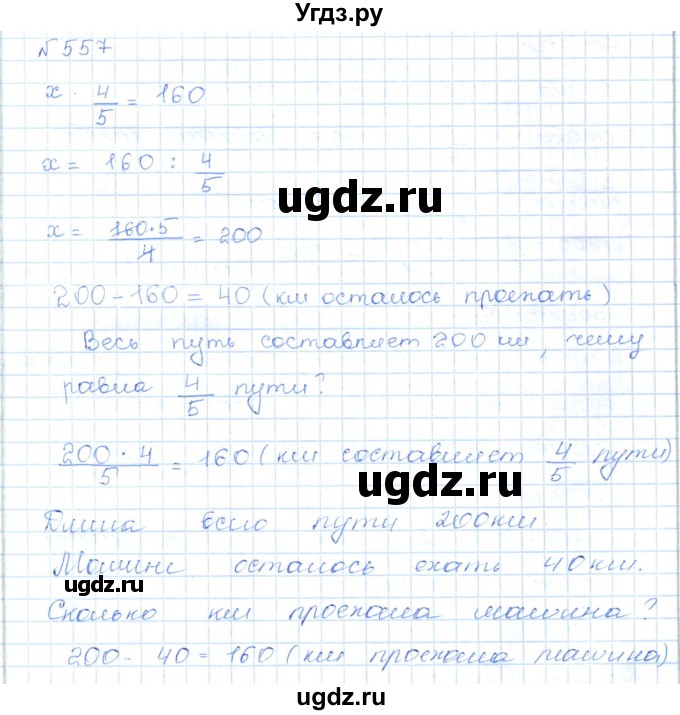 Угдз.ру
№ 557
x · 4/5 = 160
ugdz.ru
x = 160 : 4/5
x = 160·5/4 = 200
200 - 160 = 40 (км осталось проехать)
Весь путь составляет 200 км, чему
равна 4/5 пути?
200 · 4/5 = 160 (км составляет 4/5 пути)
ugdz.ru
Длина всего пути 200 км.
ugdz.ru
Машине осталось ехать 40 км.
Сколько км проехала машина?
200 - 40 = 160 (км проехала машина)
ugdz.ru